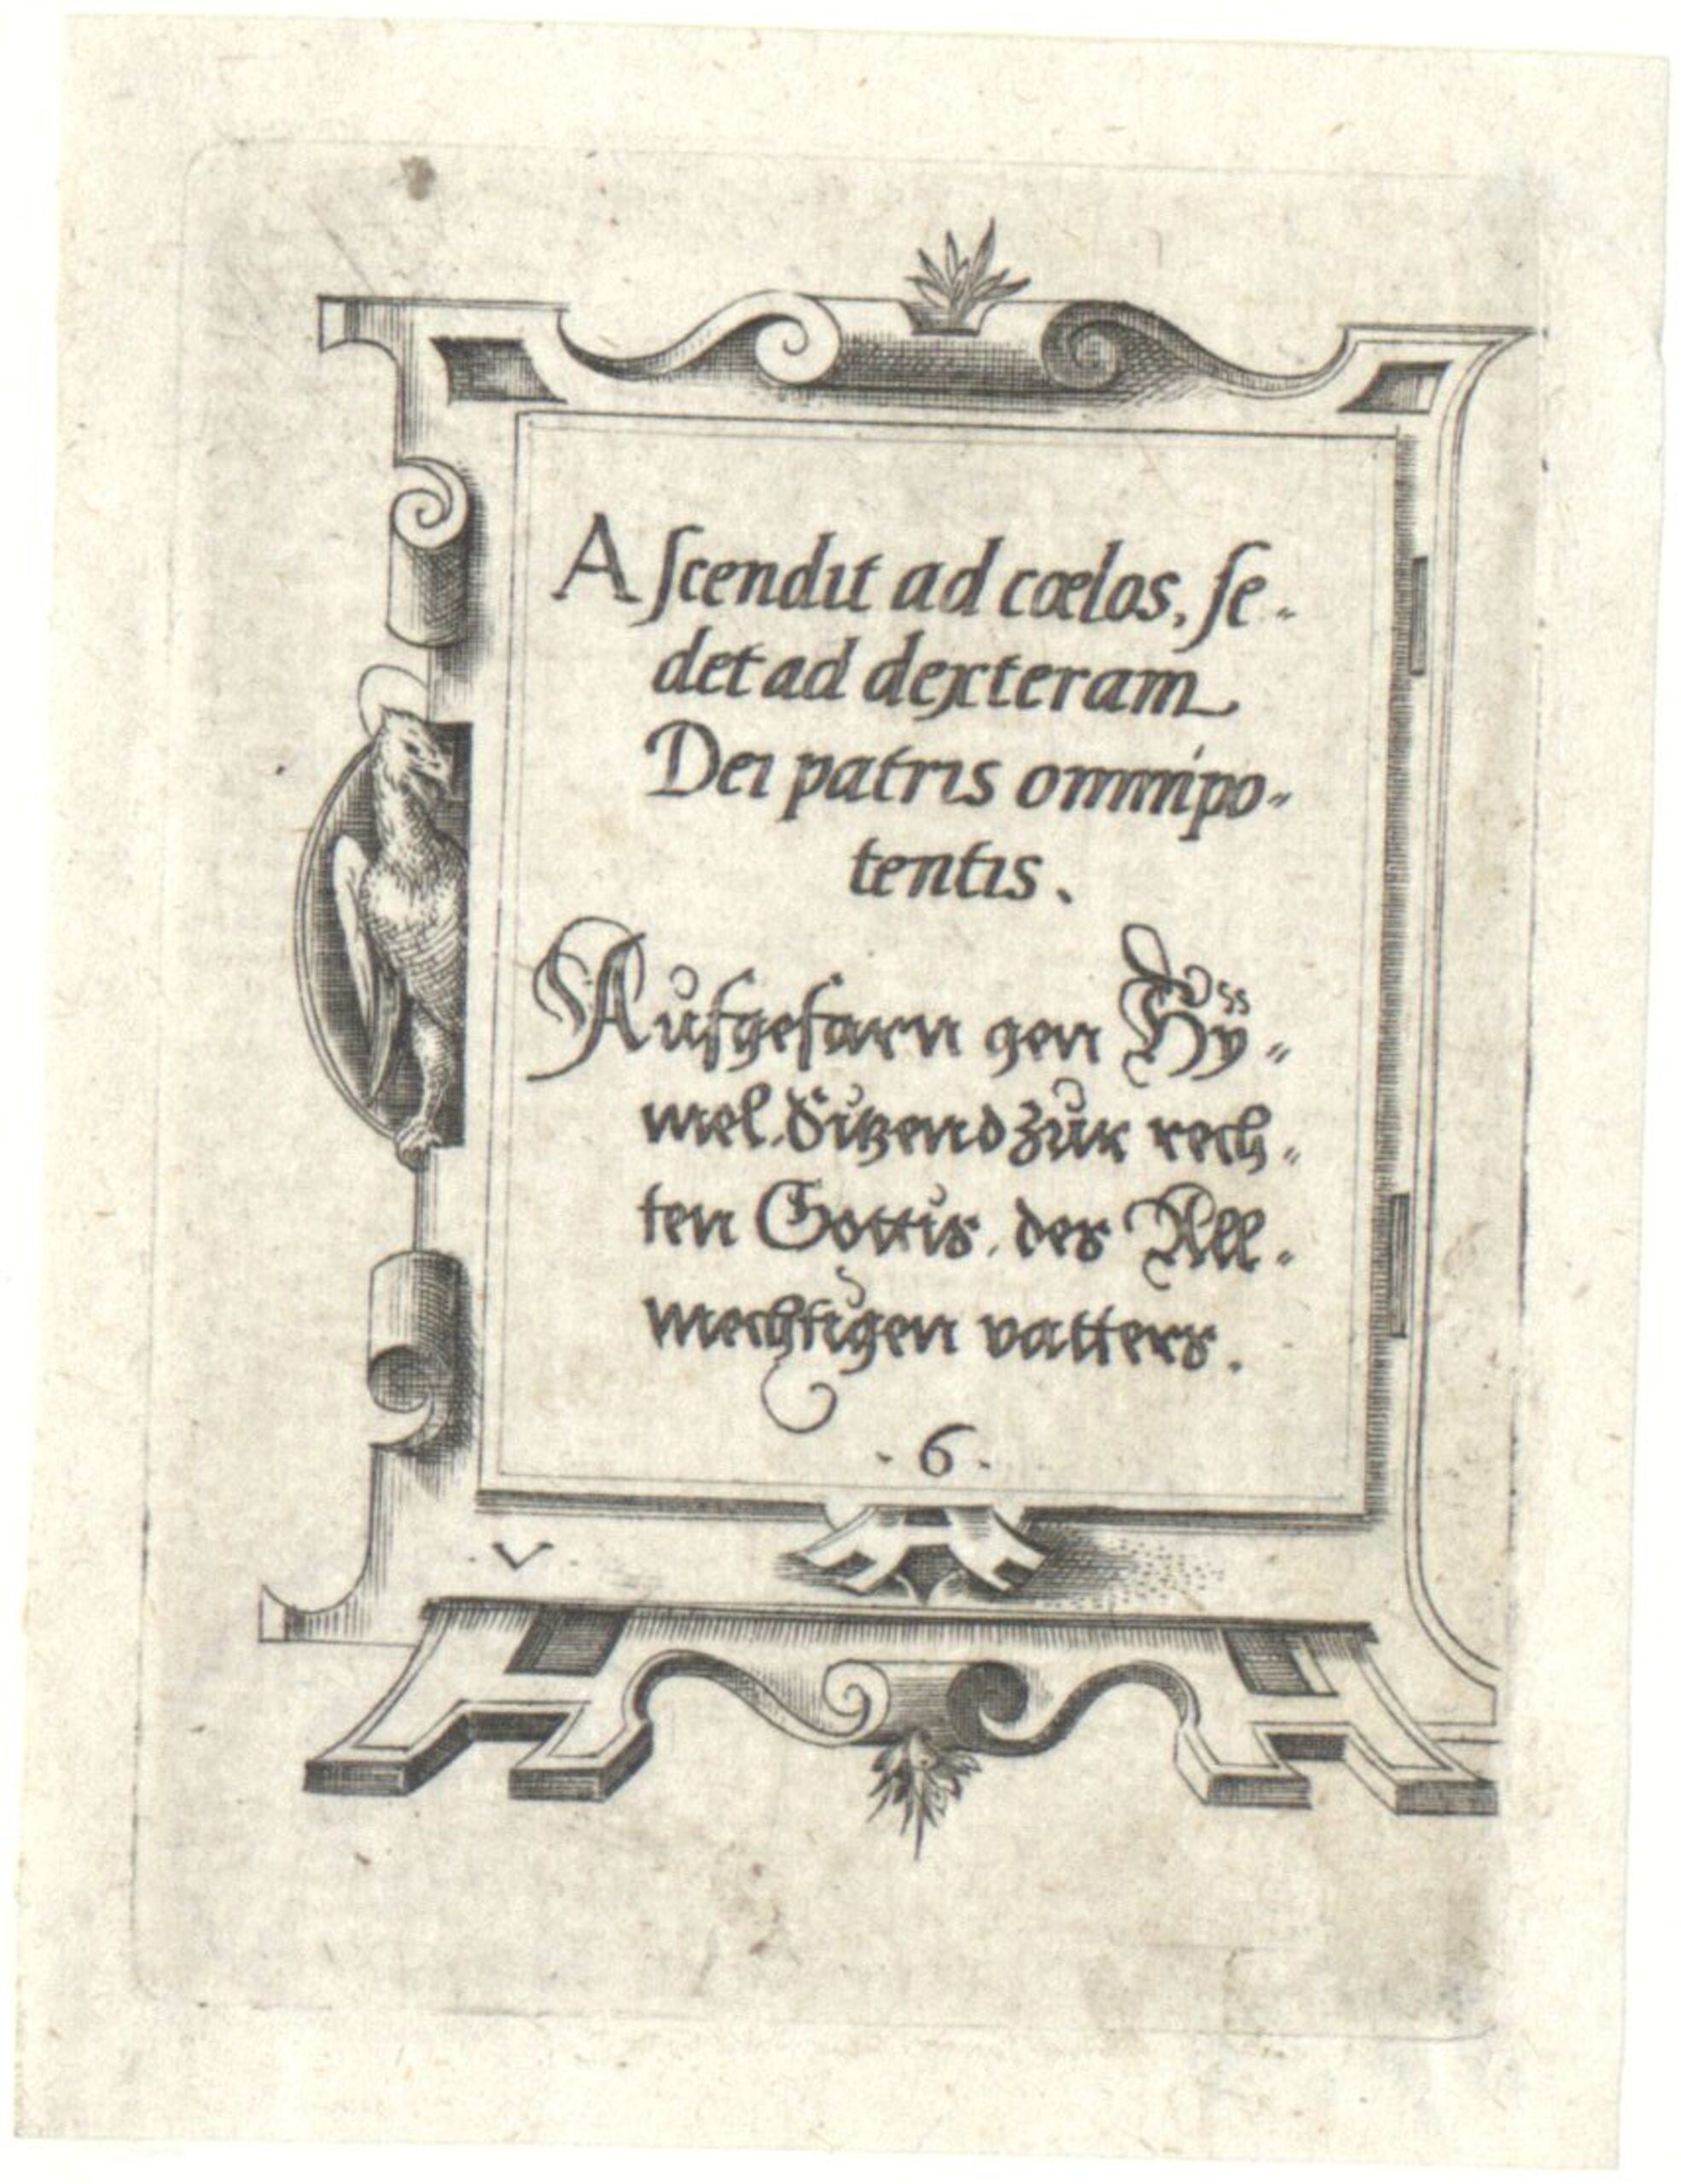 Aſcendit ad cœlos, ſe-
det ad dexteram
Dei patris omnipo-
tentis.
Aufgefarn gen Hÿ-
mel. Sitzend zur rech-
ten Gottis. des All-
mechtigen vatters.
. 6 .
. V .